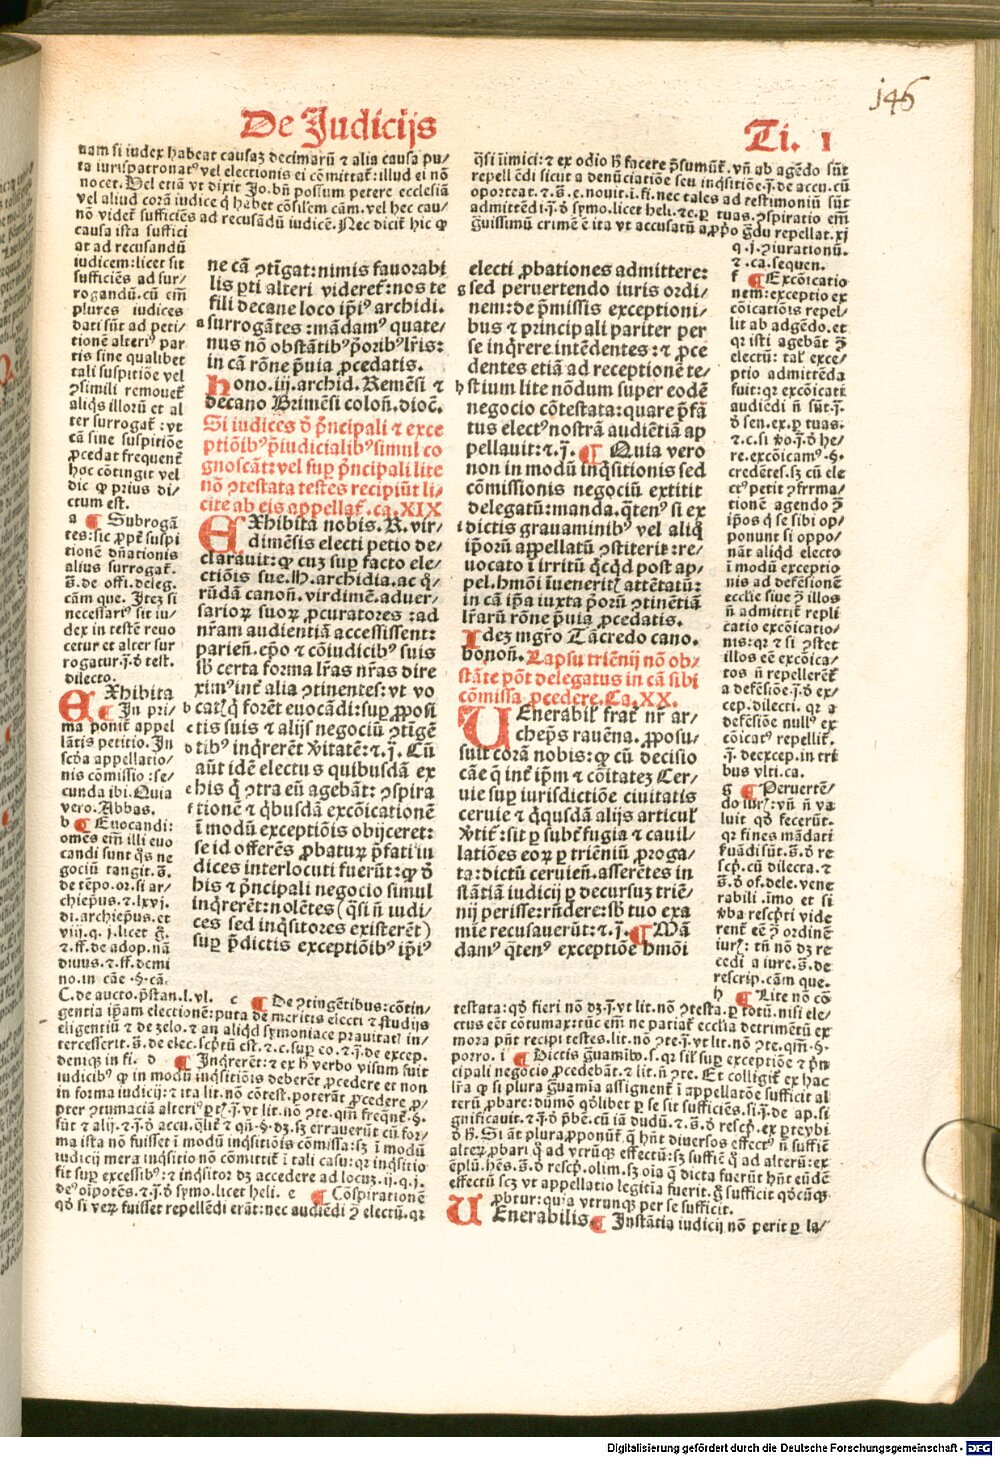 146
De Judicijs
Ti. I
nam si iudex habeat causaz decimarū ⁊ alia causa pu/
ta iurispatronatꝰ vel electionis ei cōmittat̄: illud ei nō
nocet. Vel etiā vt dixit Jo. bn̄ possum petere ecclesiā
vel aliud corā iudice q̇ habet cōsilem cām. vel hec cau/
nō videt̄ sufficiēs ad recusādū iudicē. Nec dicit̄ hic ꝙ
causa ista suffici
at ad recusandū
iudicem: licet sit
sufficiēs ad sur/
rogandū. cū em̄
plures iudices
dati sūt ad peti/
tionē alteriꝰ par
tis sine qualibet
tali suspitiōe vel
ꝯsimili remouet̄
aliq̇s illorū et al
ter surrogat̄: vt
cā sine suspitiōe
ꝓcedat frequent̄
hoc cōtingit vel
dic ꝙ prius di/
ctum est.
a ¶ Subrogā
tes: sic ꝓpt̄ suspi
tionē dn̄ationis
alius surrogat̄.
s̄. de offi. deleg.
cām que. Itez si
necessariꝰ sit iu/
dex in testē reuo
cetur et alter sur
rogatur. j̄. ō test.
dilecto.
EXhibita
¶ In pri/
ma ponit̄ appel
lātis petitio. In
scd̄a appellatio/
nis cōmissio: se/
cunda ibi. Quia
vero. Abbas.
b ¶ Euocandi:
omēs em̄ illi euo
candi sunt q̇s ne
gociū tangit. s̄.
de tēpo. or. si ar/
chiepūs. ⁊ lxvj.
di. archiepūs. et
viij. q. j. licet ḡ.
⁊ ff. de adop. nā
diuus. ⁊ ff. de mi
no. in cāe ·§· cā.
C. de aucto. p̄stan. l. vl.   c ¶ De ꝯtingētibus: cōtin/
gentia ip̄am electionē: puta de meritis electi ⁊ studijs
eligentiū ⁊ de zelo. ⁊ an aliq̇d symoniace prauitat̄ in/
tercesserit. s̄. de elec. scp̄tū est. ⁊ c. sup co. ⁊ j̄. de excep.
deniqz in fi.   d ¶ Inq̇rerēt: ⁊ ex h̄ verbo visum fuit
iudicibꝰ ꝙ in modū inq̇sitiōis deberēt ꝓcedere et non
in forma iudicij: ⁊ ita lit. nō cōtest. poterāt ꝓcedere ꝓ/
pter ꝯtumaciā alteriꝰ ꝑtꝭ. j̄. vt lit. nō ꝯte. qm̄ freqn̄t ·§·
sūt ⁊ alij. ⁊ j̄. ō accu. q̄lit̄ ⁊ qn̄ ·§· dz. sz errauerūt cū for/
ma ista nō fuisset ī modū inq̇sitiōis cōmissa: sz ī modū
iudicij mera inq̇sitio nō cōmittit̄ ī tali casu: qr inq̇sitio
fit sup̄ excessibꝰ: ⁊ inq̇sitor dz accedere ad locuz. ij. q. j.
deꝰ oīpotēs. ⁊ j̄. ō symo. licet heli.   e ¶ Cōspirationē
qō si veꝝ fuisset repellēdi erāt: nec audiēdi ꝯ electū. qr
ne cā ꝯtīgat: nimis fauorabi
lis ꝑti alteri videret̄: nos te
fili decane loco ip̄iꝰ archidi.
a surrogātes: mādamꝰ quate/
nus nō obstātibꝰ p̄oribꝰ lr̄is:
in cā rōne p̄uia ꝓcedatis.
Hono. iij. archid. Remēsi ⁊
decano Brimēsi coloñ. dioc̄.
Si iudices ō p̄ncipali ⁊ exce
ptiōibꝰ p̄iudicialibꝰ simul co
gnoscāt: vel sup̄ p̄ncipali lite
nō ꝯtestata testes recipiūt li/
cite ab eis appellat̄. ca. XIX
EXhibita nobis. R. vir/
dimēsis electi petio de/
clarauit: ꝙ cuz sup̄ facto ele/
ctiōis sue. H. archidia. ac q̇/
rūdā canoñ. virdimē. aduer/
sarioꝝ suoꝝ ꝓcuratores: ad
nr̄am audientiā accessissent:
parieñ. ep̄o ⁊ cōiudicibꝰ suis
sb̄ certa forma lr̄as nr̄as dire
ximꝰ int̄ alia ꝯtinentes: vt vo
b catꝭ q̇ forēt euocādi: sup̄ ꝓposi
c tis suis ⁊ alijs negociū ꝯtīgē
d tibꝰ inq̇rerēt v̄itatē: ⁊. j̄. Cū
aūt idē electus quibusdā ex
e his q̇ ꝯtra eū agebāt: ꝯspira
f tionē ⁊ q̇busdā excōicationē
ī modū exceptiōis obijceret:
se id offerēs ꝓbaturꝝ p̄fati iu
dices interlocuti fuerūt: ꝙ ō
his ⁊ p̄ncipali negocio simul
inq̇rerēt: nolētes (q̇si n̄ iudi/
ces sed inq̇sitores existerēt)
sup̄ p̄dictis exceptiōibꝰ ip̄iꝰ
q̇si iīmici: ⁊ ex odio h̄ facere p̄sumūt̄. vñ ab agēdo sūt
repellēdi sicut a denūciatiōe seu inq̇sitiōe. j̄. de accu. cū
oporteat. ⁊. s̄. e. nouit. i. fi. nec tales ad testimoniū sūt
admittēdi. j̄. ō symo. licet heli. ⁊ c. ꝑ tuas. ꝯspiratio em̄
ḡuissimū crimē ē ita vt accusatū a ꝓp̄o ḡdu repellat. xj
q. j. ꝯiurationū.
⁊. ca. sequen.
f ¶ Excōicatio
nem: exceptio ex
cōicatiōis repel/
lit ab adgēdo. et
qr isti agebāt ꝯ
electū: tal̄ exce/
ptio admittēda
fuit: qr excōicati
audiēdi ñ sūt. j̄.
ō sen. ex. ꝑ tuas.
⁊. c. si v̄o. j̄. ō he/
re. excōicamꝰ ·§·
credētes. sz cū ele
ctꝰ petit ꝯfirma/
tionē agendo ꝯ
ip̄os q̇ se sibi op/
ponunt si oppo/
nāt aliq̇d electo
ī modū exceptio
nis ad defēsionē
ecclīe siue ꝯ illos
ñ admittit̄ repli
catio excōicatio/
nis: qr ⁊ si ꝯstet
illos eē excōica/
tos ñ repellerēt̄
a defēsiōe. j̄. ō ex/
cep. dilecti. qr a
defēsiōe nullꝰ ex
cōicatꝰ repellit̄.
j̄. de excep. in tri
bus vlti. ca.
g ¶ Peruertē/
do iurꝭ: vn̄ ñ va
luit qō fecerūt.
qr fines mādati
ẜuādi sūt. s̄. ō re
scp̄. cū dilecta. ⁊
s̄. ō of. dele. vene
rabili. imo et si
v̄ba rescp̄ti vide
rent̄ eē ꝯ ordinē
iurꝭ: tñ nō dz re
cedi a iure. s̄. de
rescrip. cām que.
h ¶ Lite nō cō
testata: qō fieri nō dz. j̄. vt lit. nō ꝯtesta. ꝑ totū. nisi ele/
ctus eēt cōtumax: tūc em̄ ne patiat̄ ecclīa detrimētū ex
mora pn̄t recipi testes. lit. nō ꝯte. j̄. vt lit. nō ꝯte. qm̄ ·§·
porro.   i ¶ Dictis ḡuamībꝰ. s. qr sil̄ sup̄ exceptiōe ⁊ p̄n
cipali negocio ꝓcedebāt. ⁊ lit. ñ ꝯte. Et colligit̄ ex hac
lr̄a ꝙ si plura ḡuamīa assignent̄ ī appellatōe sufficit al
terū ꝓbare: dūmō q̇dlibet ꝑ se sit sufficiēs. si. j̄. de ap. si
gnificauit. ⁊. j̄. ō p̄bē. cū iā dudū. ⁊. s̄. ō rescp̄. ex ꝑte ybi
ō h̄. Si āt plura ꝓponūt̄ q̇ hn̄t diuersos effectꝰ ñ suffic̄
alteꝝ ꝓbari q̇ ad vtrūqz effectū: sz suffic̄ q̇ ad alterū: ex
ēplū. hēs. s̄. ō rescp̄. olim. sz oīa q̇ dicta fuerūt hn̄t eūdē
effectū scz vt appellatio legitīa fuerit. ḡ sufficit qdcūqz
ꝓbtur: quia vtrunqz per se sufficit.
VEnerabilis ¶ Instātia iudicij nō perit ꝑ la/
electi ꝓbationes admittere:
g sed peruertendo iuris ordi/
nem: de p̄missis exceptioni/
bus ⁊ principali pariter per
se inq̇rere intēdentes: ⁊ ꝓce
dentes etiā ad receptionē te/
h stium lite nōdum super eodē
negocio cōtestata: quare p̄fā
tus electꝰ nostrā audiētiā ap
pellauit: ⁊. j̄. ¶ Quia vero
non in modū inq̇sitionis sed
cōmissionis negociū extitit
delegatū: manda. q̄tenꝰ si ex
i dictis grauaminibꝰ vel aliq̇
ip̄orū appellatū ꝯstiterit: re/
uocato ī irritū q̇cq̇d post ap/
pel. hmōi īueneritꝭ attētatū:
in cā ip̄a iuxta p̄orū ꝯtinētiā
lr̄arū rōne p̄uia ꝓcedatis.
Idez mgr̄o Tācredo cano.
bonoñ. Lapsu triēnij nō ob/
stāte pōt delegatus in cā sibi
cōmissa ꝓcedere. Ca. XX.
VEnerabil̄ frat̄ nr̄ ar/
chep̄s rauēna. ꝓposu/
suit corā nobis: ꝙ cū decisio
cāe q̄ int̄ ip̄m ⁊ cōitatez Cer/
uie sup̄ iurisdictiōe ciuitatis
ceruie ⁊ q̇qusdā alijs articul̄
v̄tit̄: sit ꝑ subt̄fugia ⁊ cauil/
latiōes eoꝝ ꝑ triēniū ꝓroga/
ta: dictū ceruieñ. asserētes in
stātiā iudicij ꝑ decursuz triē/
nij perisse: rn̄dere: sb̄ tuo exa
mie recusauerūt: ⁊. j̄. ¶ Mā
damꝰ q̄tenꝰ exceptiōe hmōi
Digitalisierung gefördert durch die Deutsche Forschungsgemeinschaft - DFG